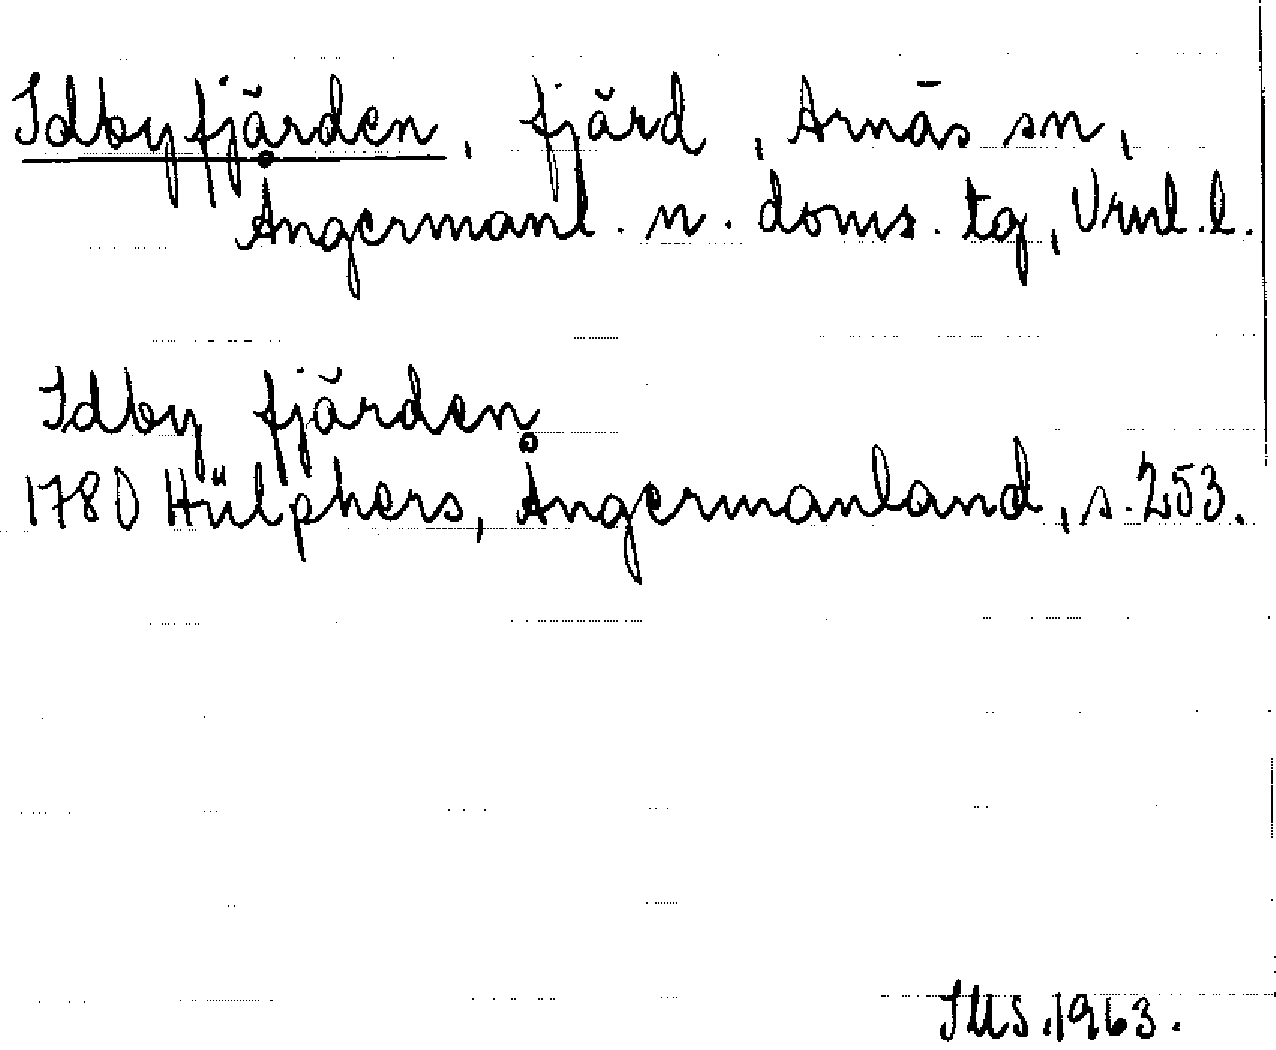 Idbyfjärden, fjärd, Arnäs sn,
Ångermanl. n. doms. tg, Vrnl.l.
Idby fjärden
1780 Hülphers, Ångermanland, s. 253.
IMS.1963.